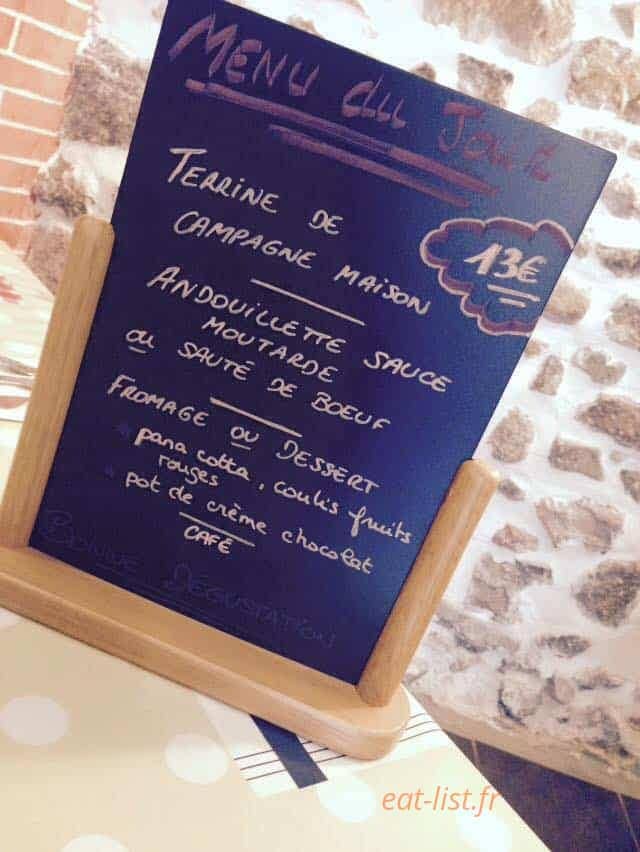 MENU du JOUR
TERRINE DE
CAMPAGNE MAISON
13€
ANDOUILLETTE SAUCE
MOUTARDE
ou SAUTÉ DE BOEUF
FROMAGE OU DESSERT
* pana cotta, coulis fruits
rouges
* pot de crème chocolat
CAFÉ
BONNE DÉGUSTATION
eat-list.fr